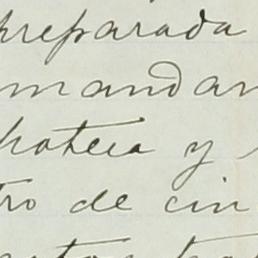 preparada
mandan
poteca y
tro de cin